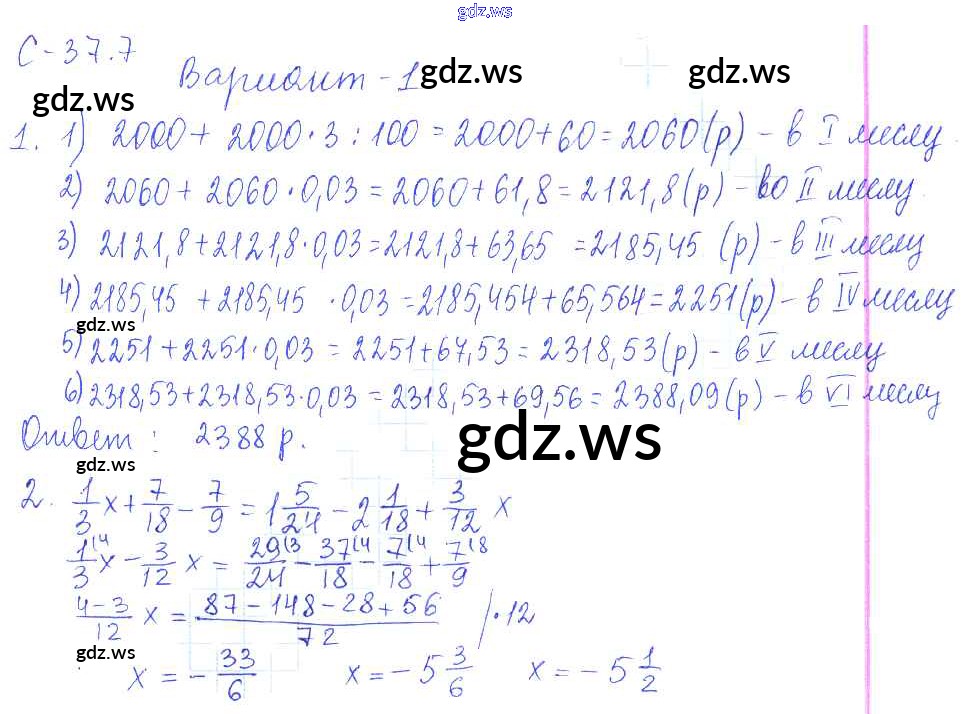 gdz.ws
С-37.7
Вариант-1
gdz.ws
gdz.ws
gdz.ws
1. 1) 2000 + 2000·3:100 = 2000+60 = 2060(р) – в I месяц.
2) 2060 + 2060·0,03 = 2060+61,8 = 2121,8(р) – во II месяц.
3) 2121,8+2121,8·0,03 = 2121,8+63,65 = 2185,45 (р) – в III месяц
4) 2185,45 + 2185,45 ·0,03 = 2185,454+65,564 = 2251(р) – в IV месяц
gdz.ws
5) 2251+2251·0,03 = 2251+67,53 = 2318,53(р) – в V месяц
6) 2318,53+2318,53·0,03 = 2318,53+69,56 = 2388,09(р) – в VI месяц
Ответ: 2388 р.
gdz.ws
gdz.ws
2. 1/3 x + 7/18 – 7/9 = 1 5/24 – 2 1/18 + 3/12 x
gdz.ws
1/3(4 x – 3/12 x = 29/24(3 – 37/18(4 – 7/18(4 + 7/9(8
(4–3)/12 x = (87–148–28+56)/72 /·12
gdz.ws
x = – 33/6 x = –5 3/6 x = –5 1/2